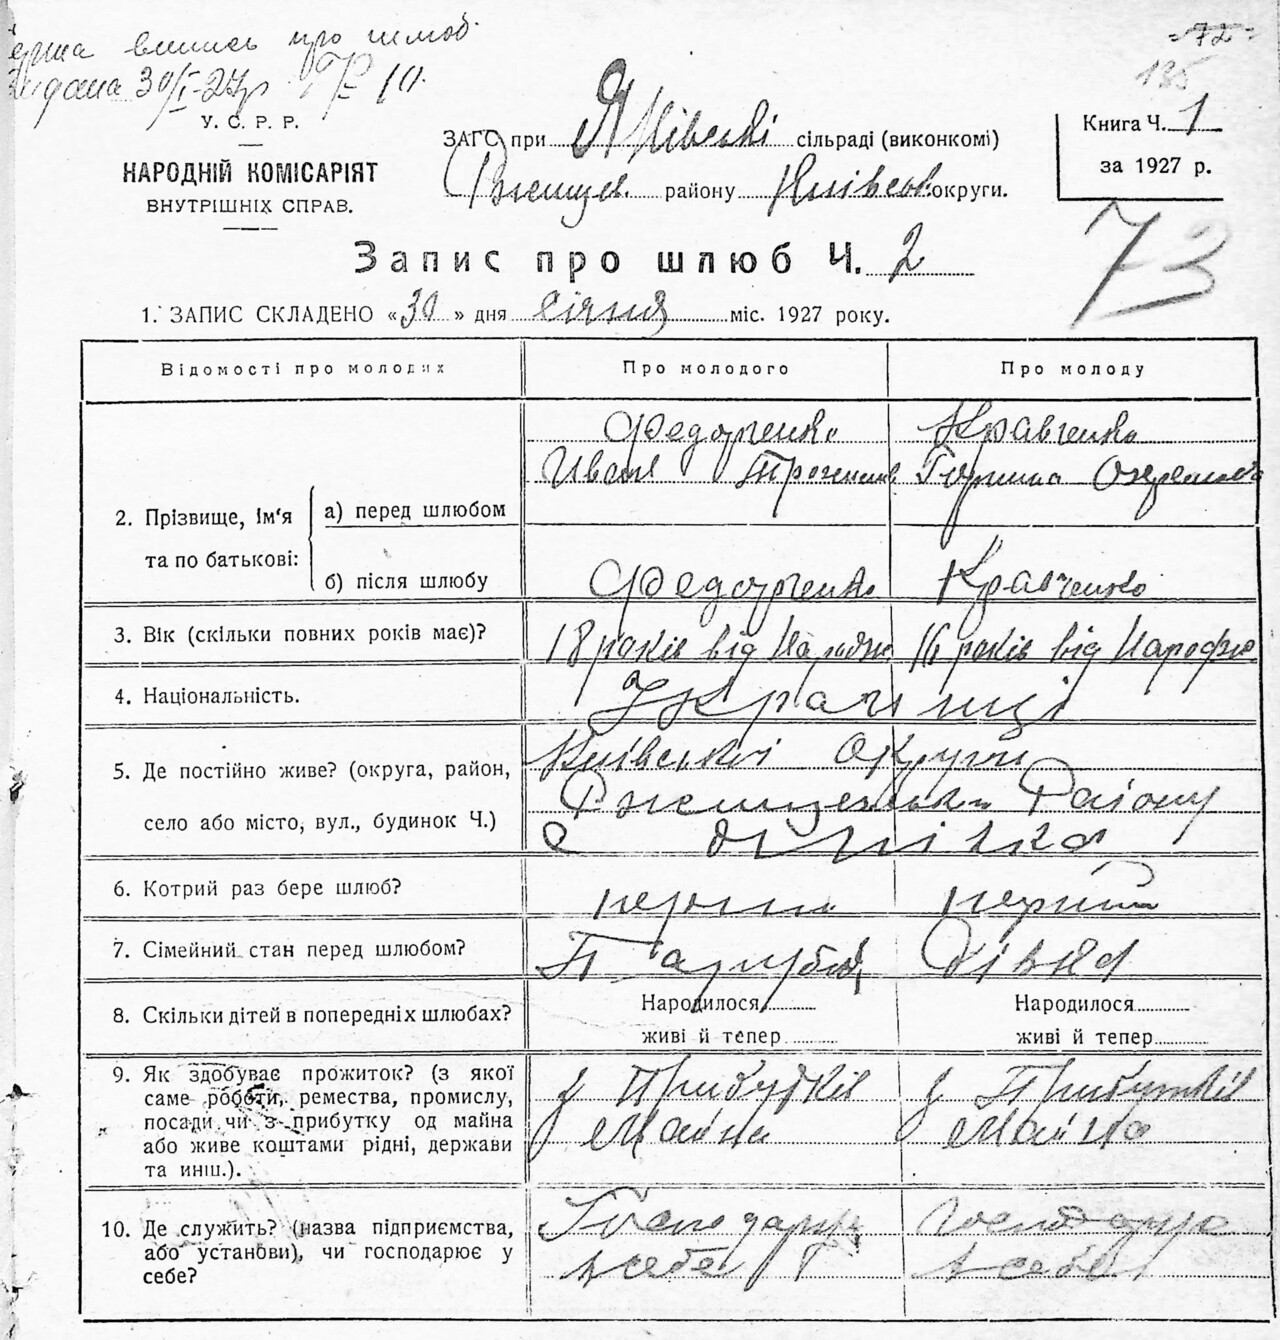 випись про шлюб
видана 30/I-27р № 10.
= 72 =
135
У. С. Р. Р.
НАРОДНІЙ КОМІСАРІЯТ
ВНУТРІШНІХ СПРАВ.
ЗАГС при сільраді (виконкомі)
Ржищев. району Київськ. округи.
Книга Ч. 1
за 1927 р.
73
Запис про шлюб Ч. 2
1. ЗАПИС СКЛАДЕНО «30» дня січня міс. 1927 року.
Відомості про молодих Про молодого Про молоду
Федорченко Кравченко
Иван
2. Прізвище, ім‘я та по батькові:
а) перед шлюбом
б) після шлюбу Федорченко Кравченко
3. Вік (скільки повних років має)? 18 років від Народж 16 років від Народже
4. Національність. Украгинці
5. Де постійно живе? (округа, район, Київської округи
село або місто, вул., будинок Ч.) Ржищевськ Району
с
6. Котрий раз бере шлюб? перший перший
7. Сімейний стан перед шлюбом? Парубок Дівка
8. Скільки дітей в попередніх шлюбах? Народилося Народилося
живі й тепер живі й тепер
9. Як здобуває прожиток? (з якої
саме роботи, ремества, промислу, з Прибутків з Прибутків
посади чи з прибутку од майна Майна Майна
або живе коштами рідні, держави
та инш.).
10. Де служить? (назва підприємства, Господарує Господарує
або установи), чи господарює у в себе в себе
себе?